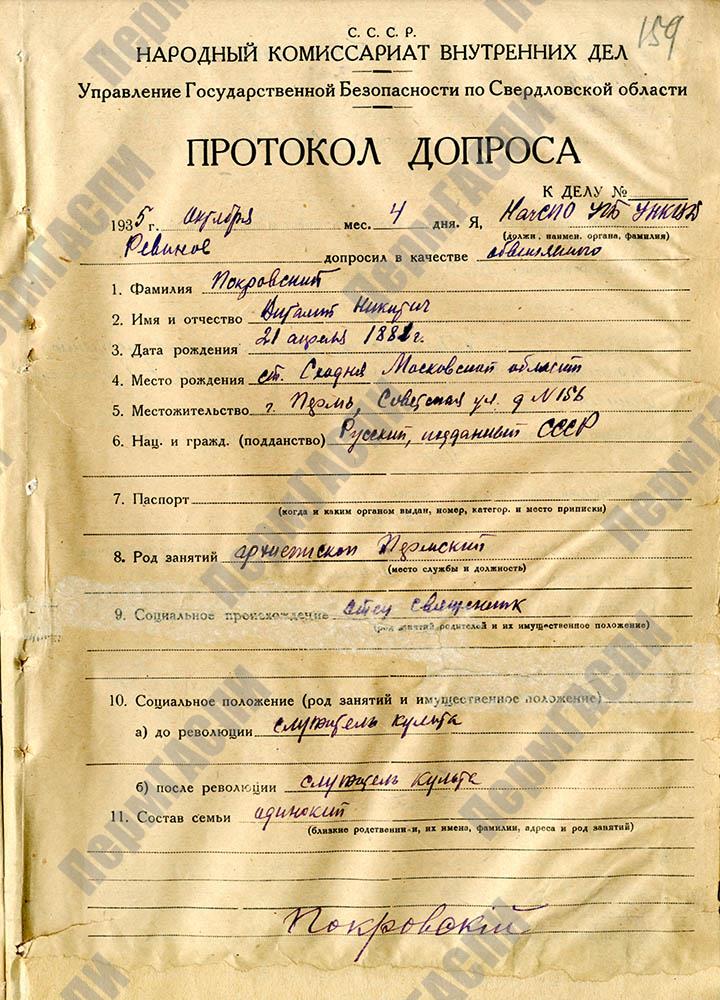 159
С. С. С. Р.
НАРОДНЫЙ КОМИССАРИАТ ВНУТРЕННИХ ДЕЛ
Управление Государственной Безопасности по Свердловской области
ПРОТОКОЛ ДОПРОСА
К ДЕЛУ №
1935 г. октября мес. 4 дня. Я, НачСПО УГБ УНКВД
(должн., наимен. органа, фамилия)
Ревинов допросил в качестве обвиняемого
1. Фамилия Покровский
2. Имя и отчество Виталий Никитич
3. Дата рождения 21 апреля 1882 г.
4. Место рождения ст. Сходня Московской области
5. Местожительство г. Пермь, Советская ул. д N 156
6. Нац. и гражд. (подданство) Русский, подданный СССР
7. Паспорт
(когда и каким органом выдан, номер, категор. и место приписки)
8. Род занятий архиепископ Пермский
(место службы и должность)
9. Социальное происхождение отец священник
(род занятий родителей и их имущественное положение)
10. Социальное положение (род занятий и имущественное положение)
а) до революции служитель культа
б) после революции служитель культа
11. Состав семьи одинокий
(близкие родственники, их имена, фамилии, адреса и род занятий)
Покровский
ПермГАСПИ